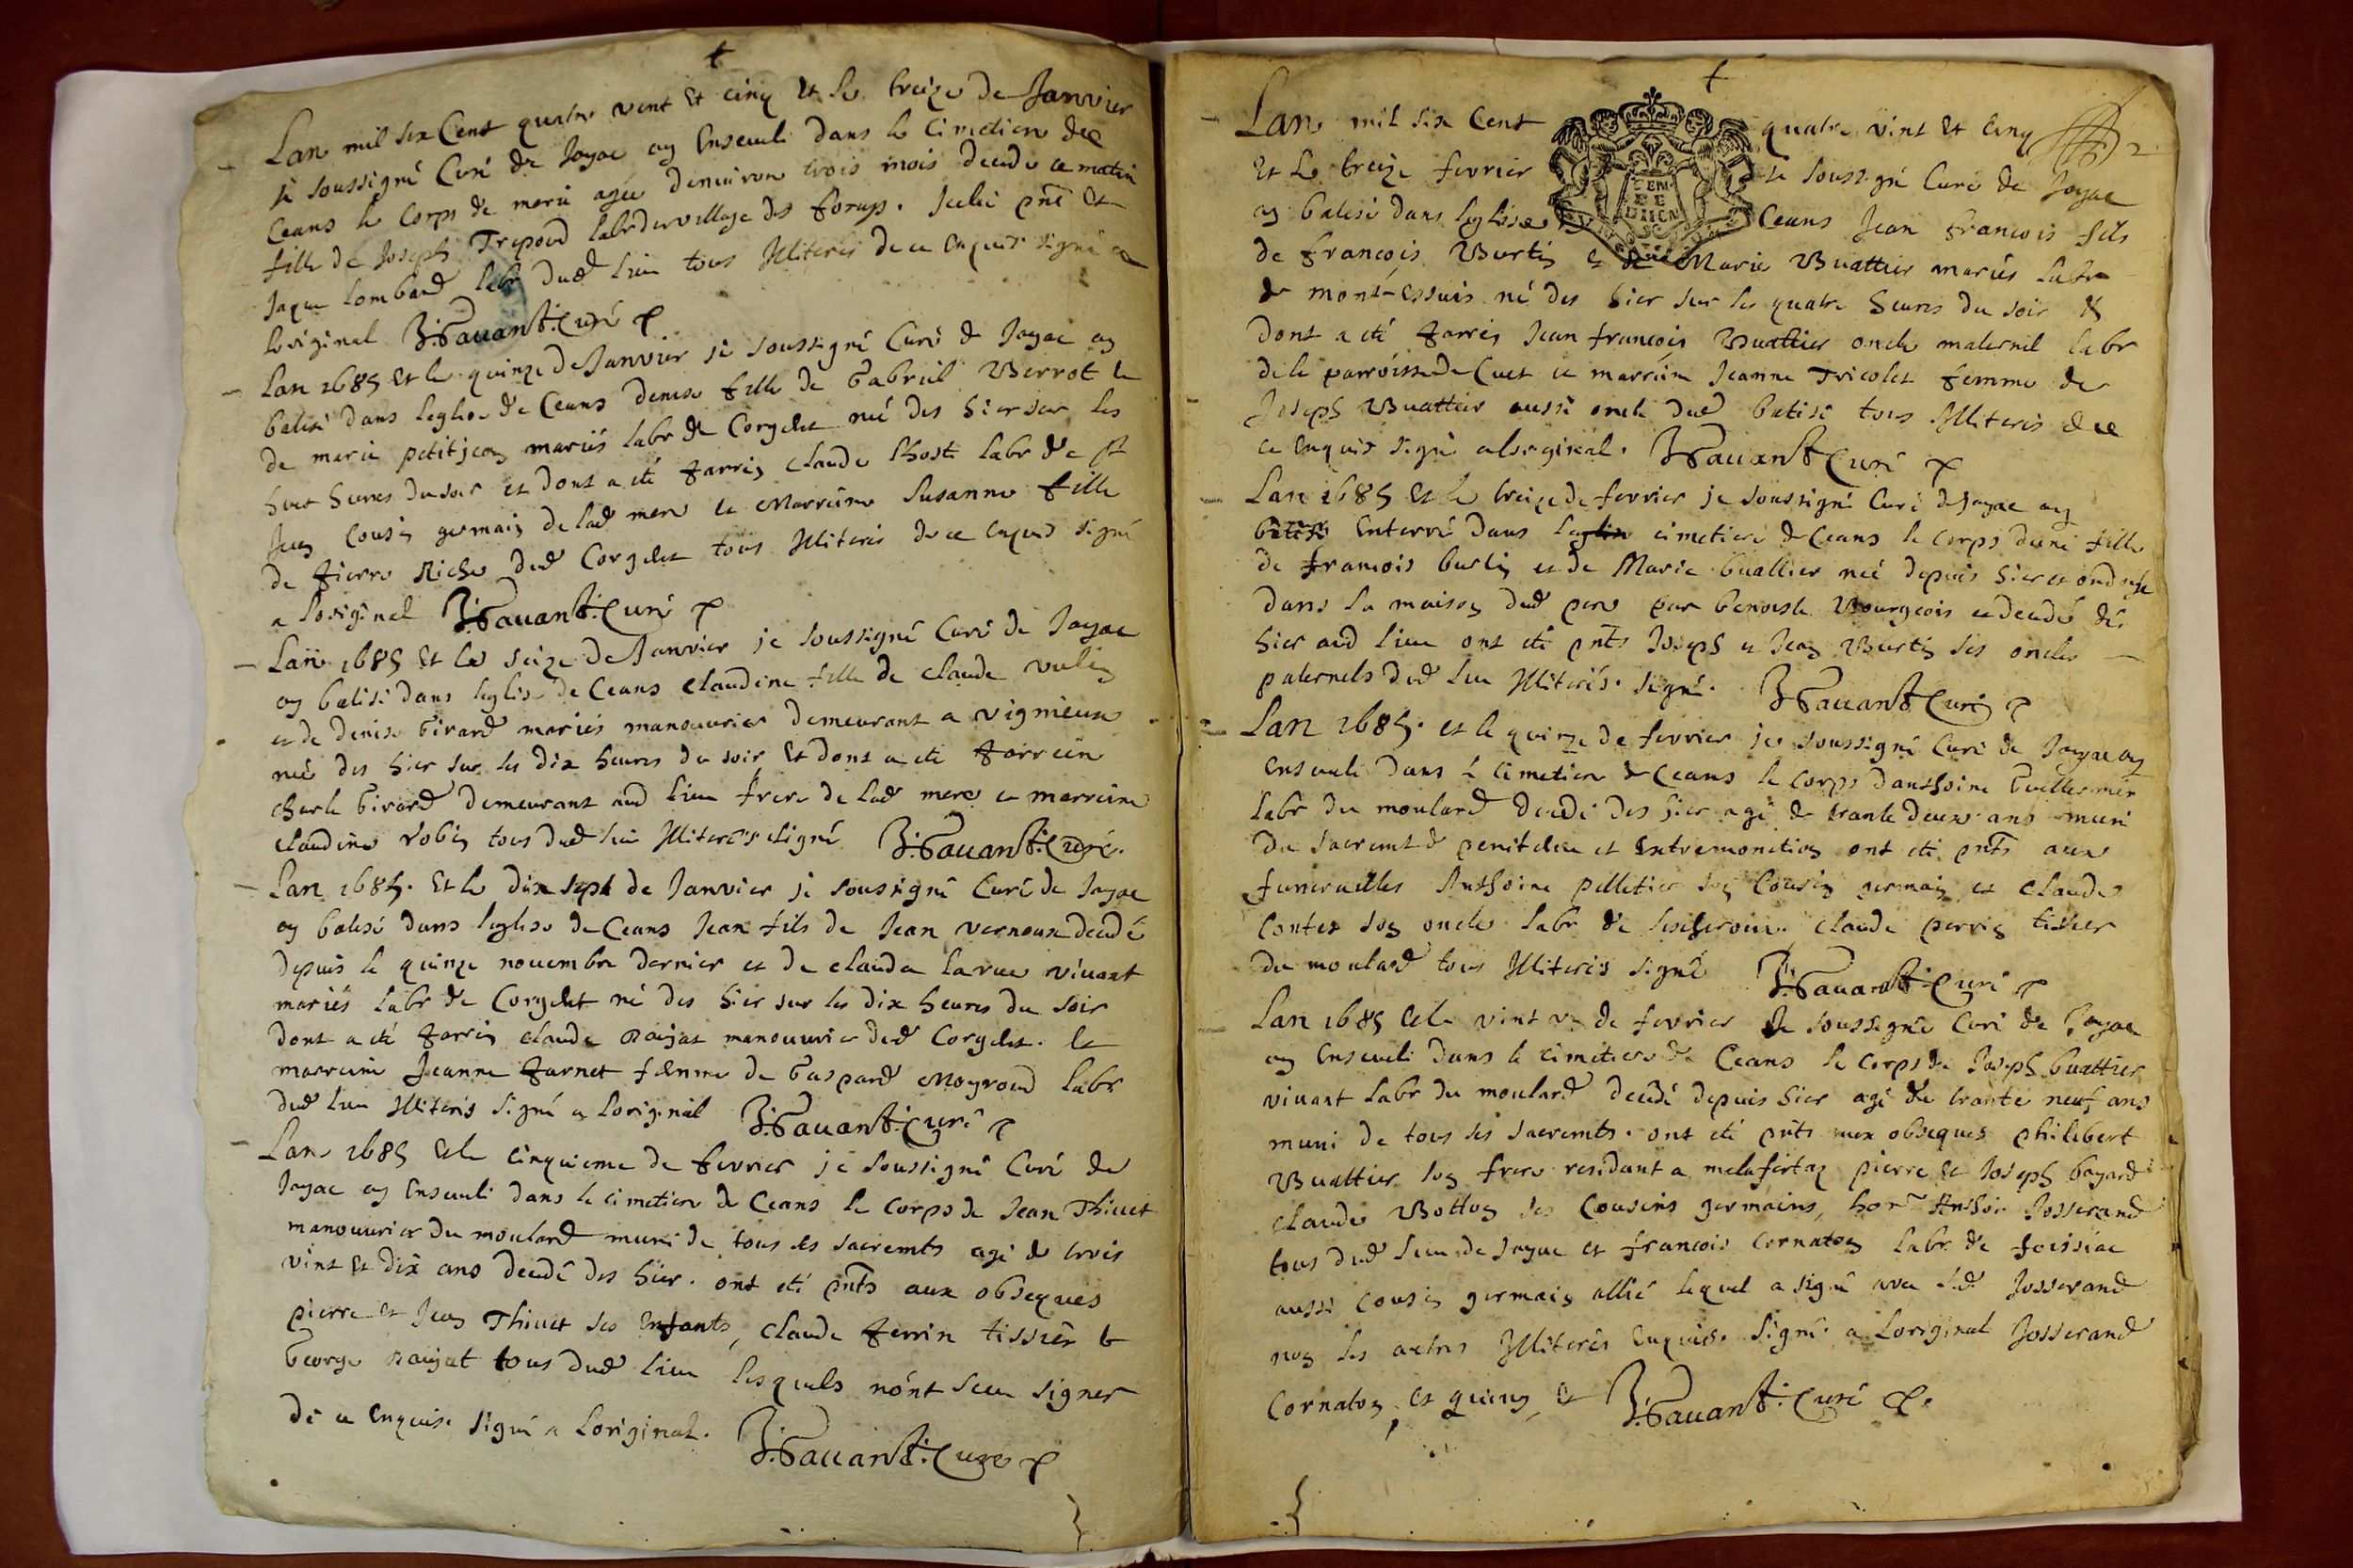 Lan mil six Cent quatre vint et cinq et le treize de Janvier
je soussigné Curé de Jayac ay Enseveli dans le Cimetiere de
Ceans le Corps de marie agée denuiron trois mois decede ce matin
fille de Joseph labr du village des . Icelui pnt et
Jaque lombard labr dud lieu tous Illiteres de ce Enquis signé a
loriginal Curé
Lan 1685 et le quinze de Janvier je soussigné Curé de Jayac ay
batisé dans leglise de Ceans denise fille de Gabriel Verrot et
de marie petitjean mariés labr de Corgelet née des hier sur les
huit heures du soir et dont a eté parrin claude lhoste labr de st
Jean Cousin germain de lad mere et Marreine Susanne fille
de pierre Riche dud Corgelet tous Illiteres de ce Enquis signé
a loriginal Curé
Lan 1685 et le seize de Janvier je soussigné Curé de Jayac
ay batisé dans leglise de Ceans claudine fille de claude vulin
et de denise Girard mariés manouurier demeurant a vignieux
née des hier sur les dix heures du soir et dont a eté parrein
charle Girard demeurant aud lieu frere de lad mere et marreine
claudine robin tous dud lieu Illiterés signé Curé.
Lan 1685. et le dix sept de Janvier je soussigné Curé de Jayac
ay batisé dans leglise de Ceans Jean fils de Jean vernoux decedé
depuis le quinze nouembre dernier et de clauda larue viuant
mariés labr de Corgelet né des hier sur les dix heures du soir
dont a eté parrin claude raijat manouurier dud Corgelet. et
marreine Jeanne parnet femme de Gaspard Moyroud labr
dud lieu Illiterés signé a loriginal Curé
Lan 1685 et le cinquieme de feurier je soussigné Curé de
Jayac ay Enseueli dans le cimetiere de Ceans le corps de Jean Thiuet
manouurier du moulard muni de tous les sacremts agé de trois
vint et dix ans decedé des hier. ont eté pnts aux obseques
pierre et Jean Thiuet ses Enfants, claude perrin tissier et
George raijat tous dud lieu lesquels nont sceu signer
de ce enquis. signé a Loriginal. Cure
Lan mil six Cent quatre vint et cinq 2
et le treize feurier je soussigné Curé de Jayac
ay batisé dans leglise de Ceans Jean francois fils
de francois Burtin et de Marie Buattier mariés labr
de mont-essuis né des hier sur les quatre heures du soir et
dont a eté parrin Jean francois Buattier oncle maternel labr
de la parroisse de Cuet et marreine Jeanne Tricolet femme de
Joseph Buattier aussi oncle dud batisé tous Illiterés de
ce enquis signé a loriginal. Curé
Lan 1685 et le treize de feurier je soussigné Curé de Jayac ay
batisé Enterré dans leglise cimetiere de Ceans le corps dune fille
de francois burtin et de Marie buattier née depuis hier et ondoyée
dans la maison dud pere par benoiste Bourgeois et decedé des
hier aud lieu ont eté pnts Joseph et Jean Burtin ses oncles
paternels dud lieu Illiterés. signé. Curé
Lan 1685. et le quinze de feurier je soussigné Curé de Jayac ay
enseueli dans le cimetiere de Ceans le corps danthoine Guillermin
labr du moulard decedé des hier agé de trante deux ans muni
du sacremt de penitence et Extremonction ont eté pnts aux
funerailles Anthoine pelletier son Cousin germain et claude
Contet son oncle labr de claude perrin tissier
du moulard tous Illiterés signé Curé
Lan 1685 et le vint un de feurier je soussigné Curé de Jayac
ay Enseueli dans le cimetiere de Ceans le corps de Joseph buattier
viuant labr du moulard decedé depuis hier agé de trante neuf ans
muni de tous ses sacremts. ont eté pnts aux obseques philibert
Buattier son frere residant a malafertaz pierre et Joseph bayard
claude Botton ses Cousins germains, honr Anthoi Josserand
tous dud lieu de Jayac et francois Cornaton labr de foissiac
aussi cousin germain allié lequel a signé avec led Josserand
non les autres Illiterés Enquis. signé. a Loriginal Josserand
Cornaton, et et Curé